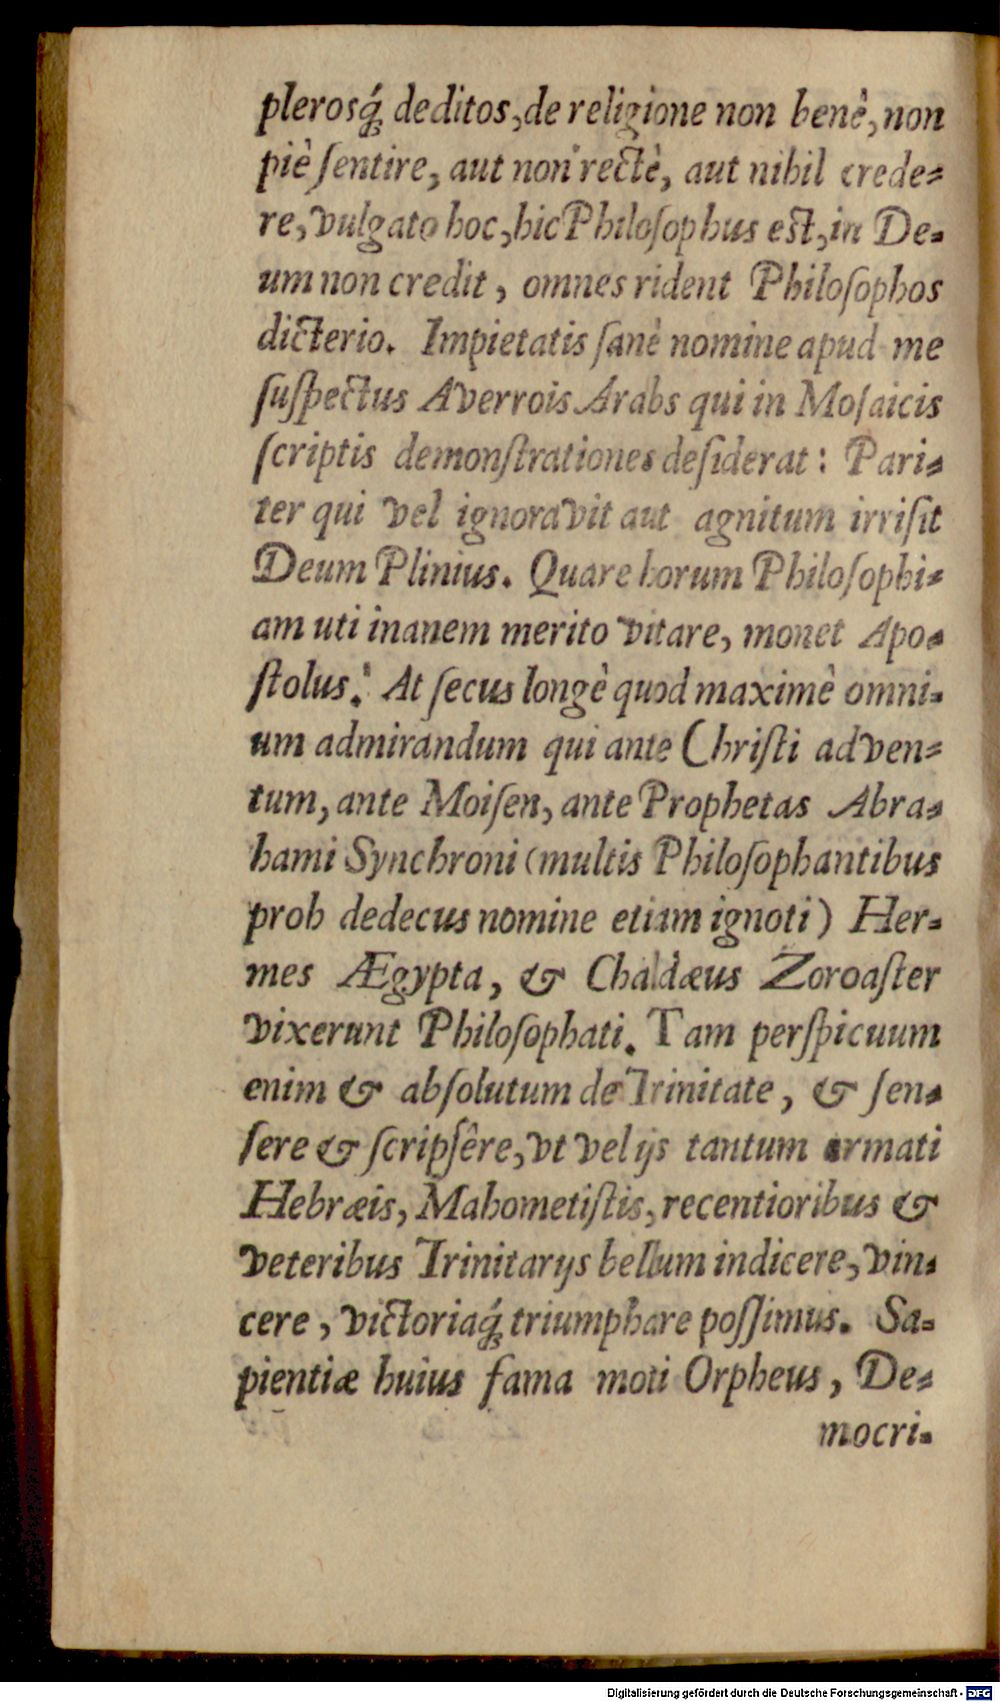 plerosq́ꝫ deditos, de religione non benè, non
piè ſentire, aut non rectè, aut nihil crede-
re, vulgato hoc, hic Philoſophus eſt, in De-
um non credit, omnes rident Philoſophos
dicterio. Impietatis ſanè nomine apud me
ſuſpectus Averrois Arabs qui in Moſaicis
ſcriptis demonſtrationes deſiderat: Pari-
ter qui vel ignoravit aut agnitum irriſit
Deum Plinius. Quare horum Philoſophi-
am uti inanem merito vitare, monet Apo-
ſtolus. At ſecus longè quod maximè omni-
um admirandum qui ante Chriſti adven-
tum, ante Moiſen, ante Prophetas Abra-
hami Synchroni (multis Philoſophantibus
proh dedecus nomine etiam ignoti) Her-
mes Ægypta, & Chaldæus Zoroaſter
vixerunt Philoſophati. Tam perſpicuum
enim & abſolutum de Trinitate, & ſen-
ſere & ſcripſêre, vt vel ijs tantum armati
Hebræis, Mahometiſtis, recentioribus &
veteribus Trinitarijs bellum indicere, vin-
cere, victoriaq́ꝫ triumphare poſſimus. Sa-
pientiæ huius fama moti Orpheus, De-
mocri-
Digitalisierung gefördert durch die Deutsche Forschungsgemeinschaft - DFG